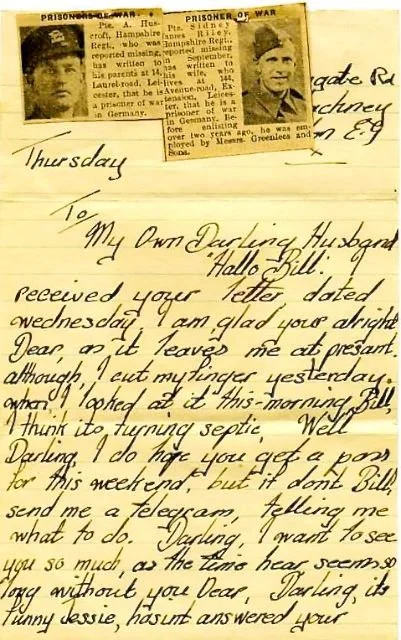 PRISONERS OF WAR
Pte. A. Hus-
croft, Hampshire
Regt., who was
reported missing,
has written to
his parents at 14
Laurel-road, Lei-
cester, that he is
a prisoner of war
in Germany.
PRISONER OF WAR
Pte. Sidney
James Riley,
Hampshire Regt.,
reported missing
in September,
has written to
his wife, who
lives at 14
Avenue-road, Ex-
tension, Leices-
ter, that he is a
prisoner of war
in Germany. Be-
fore enlisting
over two years ago, he was em-
ployed by Messrs. Greenlees and
Sons.
gate Rd
ackney
on E.9
Thursday
To
My Own Darling Husband
"Hallo Bill." I
received your letter, dated
wednesday, I am glad your alright
Dear, as it leaves me at presant.
although, I cut my finger yesterday.
when I looked at it this-morning Bill,
I think its turning septic, Well
Darling, I do hope you get a pass
for this weekend, but if dont Bill,
send me a telegram, telling me
what to do. Darling, I want to see
you so much, as the time hear seems so
long without you Dear, Darling, its
funny Jessie, hasint answered your